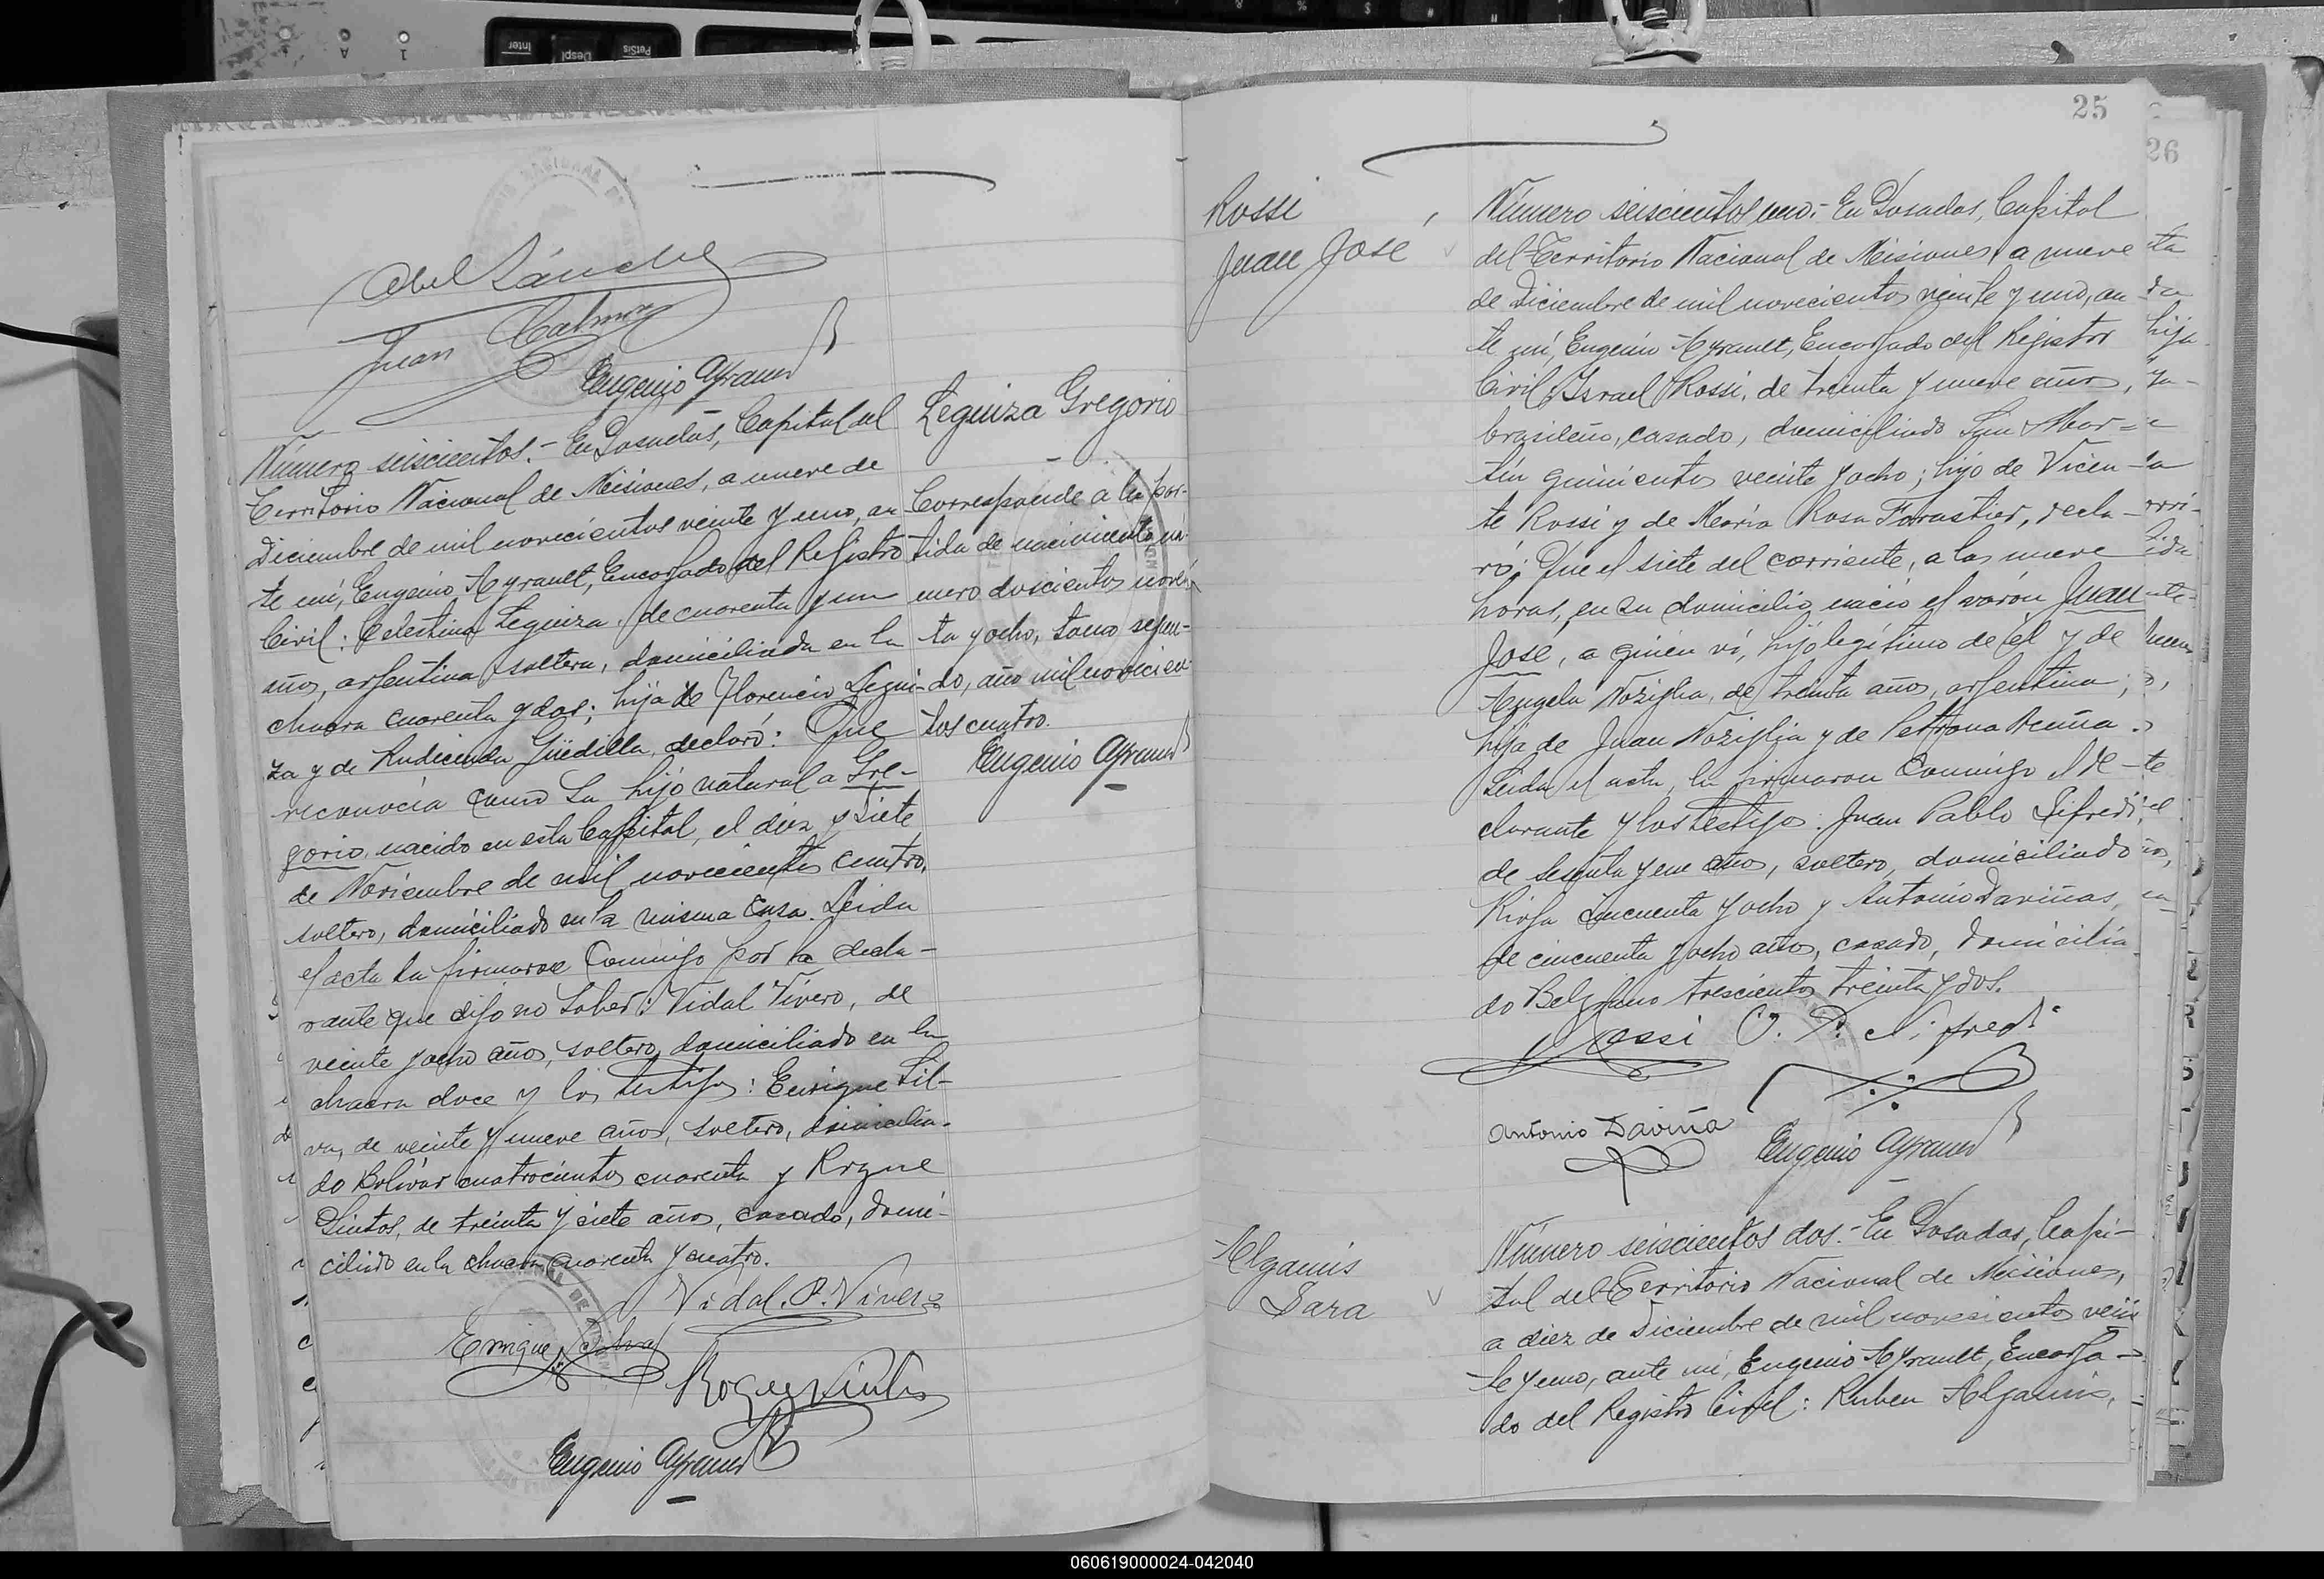 Abel Sánchez
Juan
Eugenio Ayrault
Número seiscientos.- En Posadas, Capital del
Territorio Nacional de Misiones, a nueve de
Diciembre de mil novecientos veinte y uno, an
te mí, Eugenio Ayrault, Encargado del Registro
Civil: Celestina Leguiza, de cuarenta y un
años, argentina, soltera, domiciliada en la
chacra cuarenta y dos; hija de Florencio Legui-
za y de Rudicinda Güedilla, declaró: Que
reconocía como su hijo natural a Gre-
gorio, nacido en esta Capital, el diez y siete
de Noviembre de mil novecientos cuatro,
soltero, domiciliado en la misma casa. Leida
el acta la firmaron conmigo por la decla-
rante que dijo no saber: Vidal Vivero, de
veinte y ocho años, soltero, domiciliado en la
chacra doce y los testigos: Enrique Sil-
va, de veinte y nueve años, soltero, domicilia-
do Bolívar cuatrocientos cuarenta y Roque
de treinta y siete años, casado, domi-
ciliado en la chacra cuarenta y cuatro.
Vidal. P. Vivero
Enrique Silva
Roque
Eugenio Ayrault
Leguiza Gregorio
Corresponde a la par-
tida de nacimiento nú-
mero doscientos noven
ta y ocho, tomo segun-
do, año mil novecien-
tos cuatro.
Eugenio Ayrault
25
26
Rossi
Juan José
Número seiscientos uno.- En Posadas, Capital
del Territorio Nacional de Misiones, a nueve
de Diciembre de mil novecientos veinte y uno, an
te mí, Eugenio Ayrault, Encargado del Registro
Civil, Israel Rossi, de treinta y nueve años,
brasileño, casado, domiciliado San Mar-
tín quinientos veinte y ocho; hijo de Vicen-
te Rossi y de María Rosa Forastier, decla-
ró: Que el siete del corriente, a las nueve
horas, en su domicilio nació el varón Juan
José, a quién ví, hijo legítimo de él y de
Angela Noziglia, de treinta años, argentina;
hija de Juan Noziglia y de Petrona Acuña.
Leida el acta, la firmaron conmigo el de-
clarante y los testigos: Juan Pablo Sifredi,
de sesenta y un años, soltero, domiciliado
Rioja cincuenta y ocho y Antonio Daviñas,
de cincuenta y ocho años, casado, domicilia
do Belgrano trescientos treinta y dos.
Rossi J. P. Sifredi
Antonio Daviña
Eugenio Ayrault
Algamis
Sara
Número seiscientos dos.- En Posadas, Capi-
tal del Territorio Nacional de Misiones,
a diez de Diciembre de mil novecientos vein
te y uno, ante mí, Eugenio Ayrault, Encarga-
do del Registro Civil: Ruben Algamis,
060619000024-042040